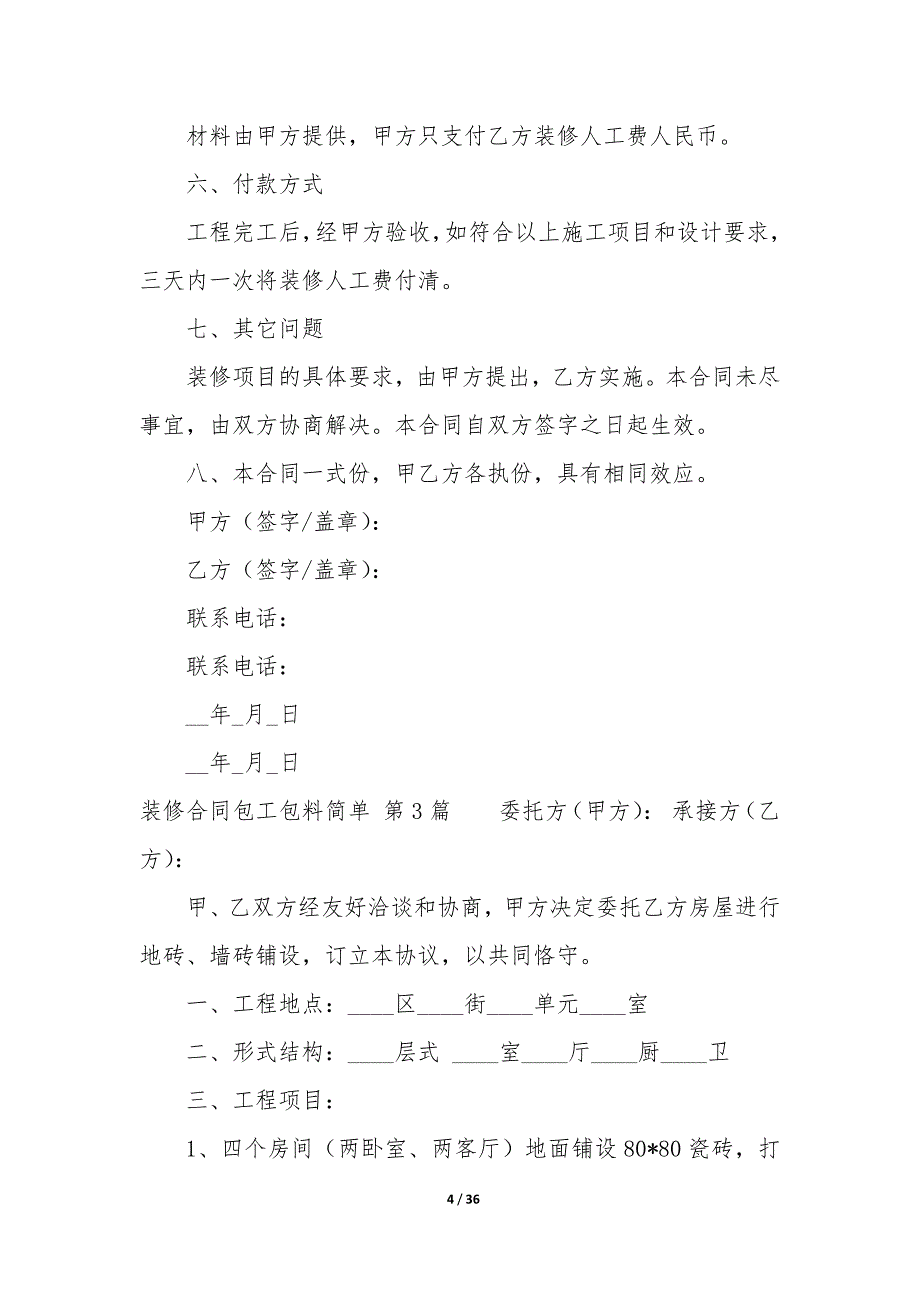 材料由甲方提供，甲方只支付乙方装修人工费人民币。
六、付款方式
工程完工后，经甲方验收，如符合以上施工项目和设计要求，
三天内一次将装修人工费付清。
七、其它问题
装修项目的具体要求，由甲方提出，乙方实施。本合同未尽
事宜，由双方协商解决。本合同自双方签字之日起生效。
八、本合同一式份，甲乙方各执份，具有相同效应。
甲方（签字/盖章）：
乙方（签字/盖章）：
联系电话：
联系电话：
__年_月_日
__年_月_日
装修合同包工包料简单 第3篇　　委托方（甲方）： 承接方（乙
方）：
甲、乙双方经友好洽谈和协商，甲方决定委托乙方房屋进行
地砖、墙砖铺设，订立本协议，以共同恪守。
一、工程地点：____区____街____单元____室
二、形式结构：____层式 ____室____厅____厨____卫
三、工程项目：
1、四个房间（两卧室、两客厅）地面铺设80*80瓷砖，打
4 / 36